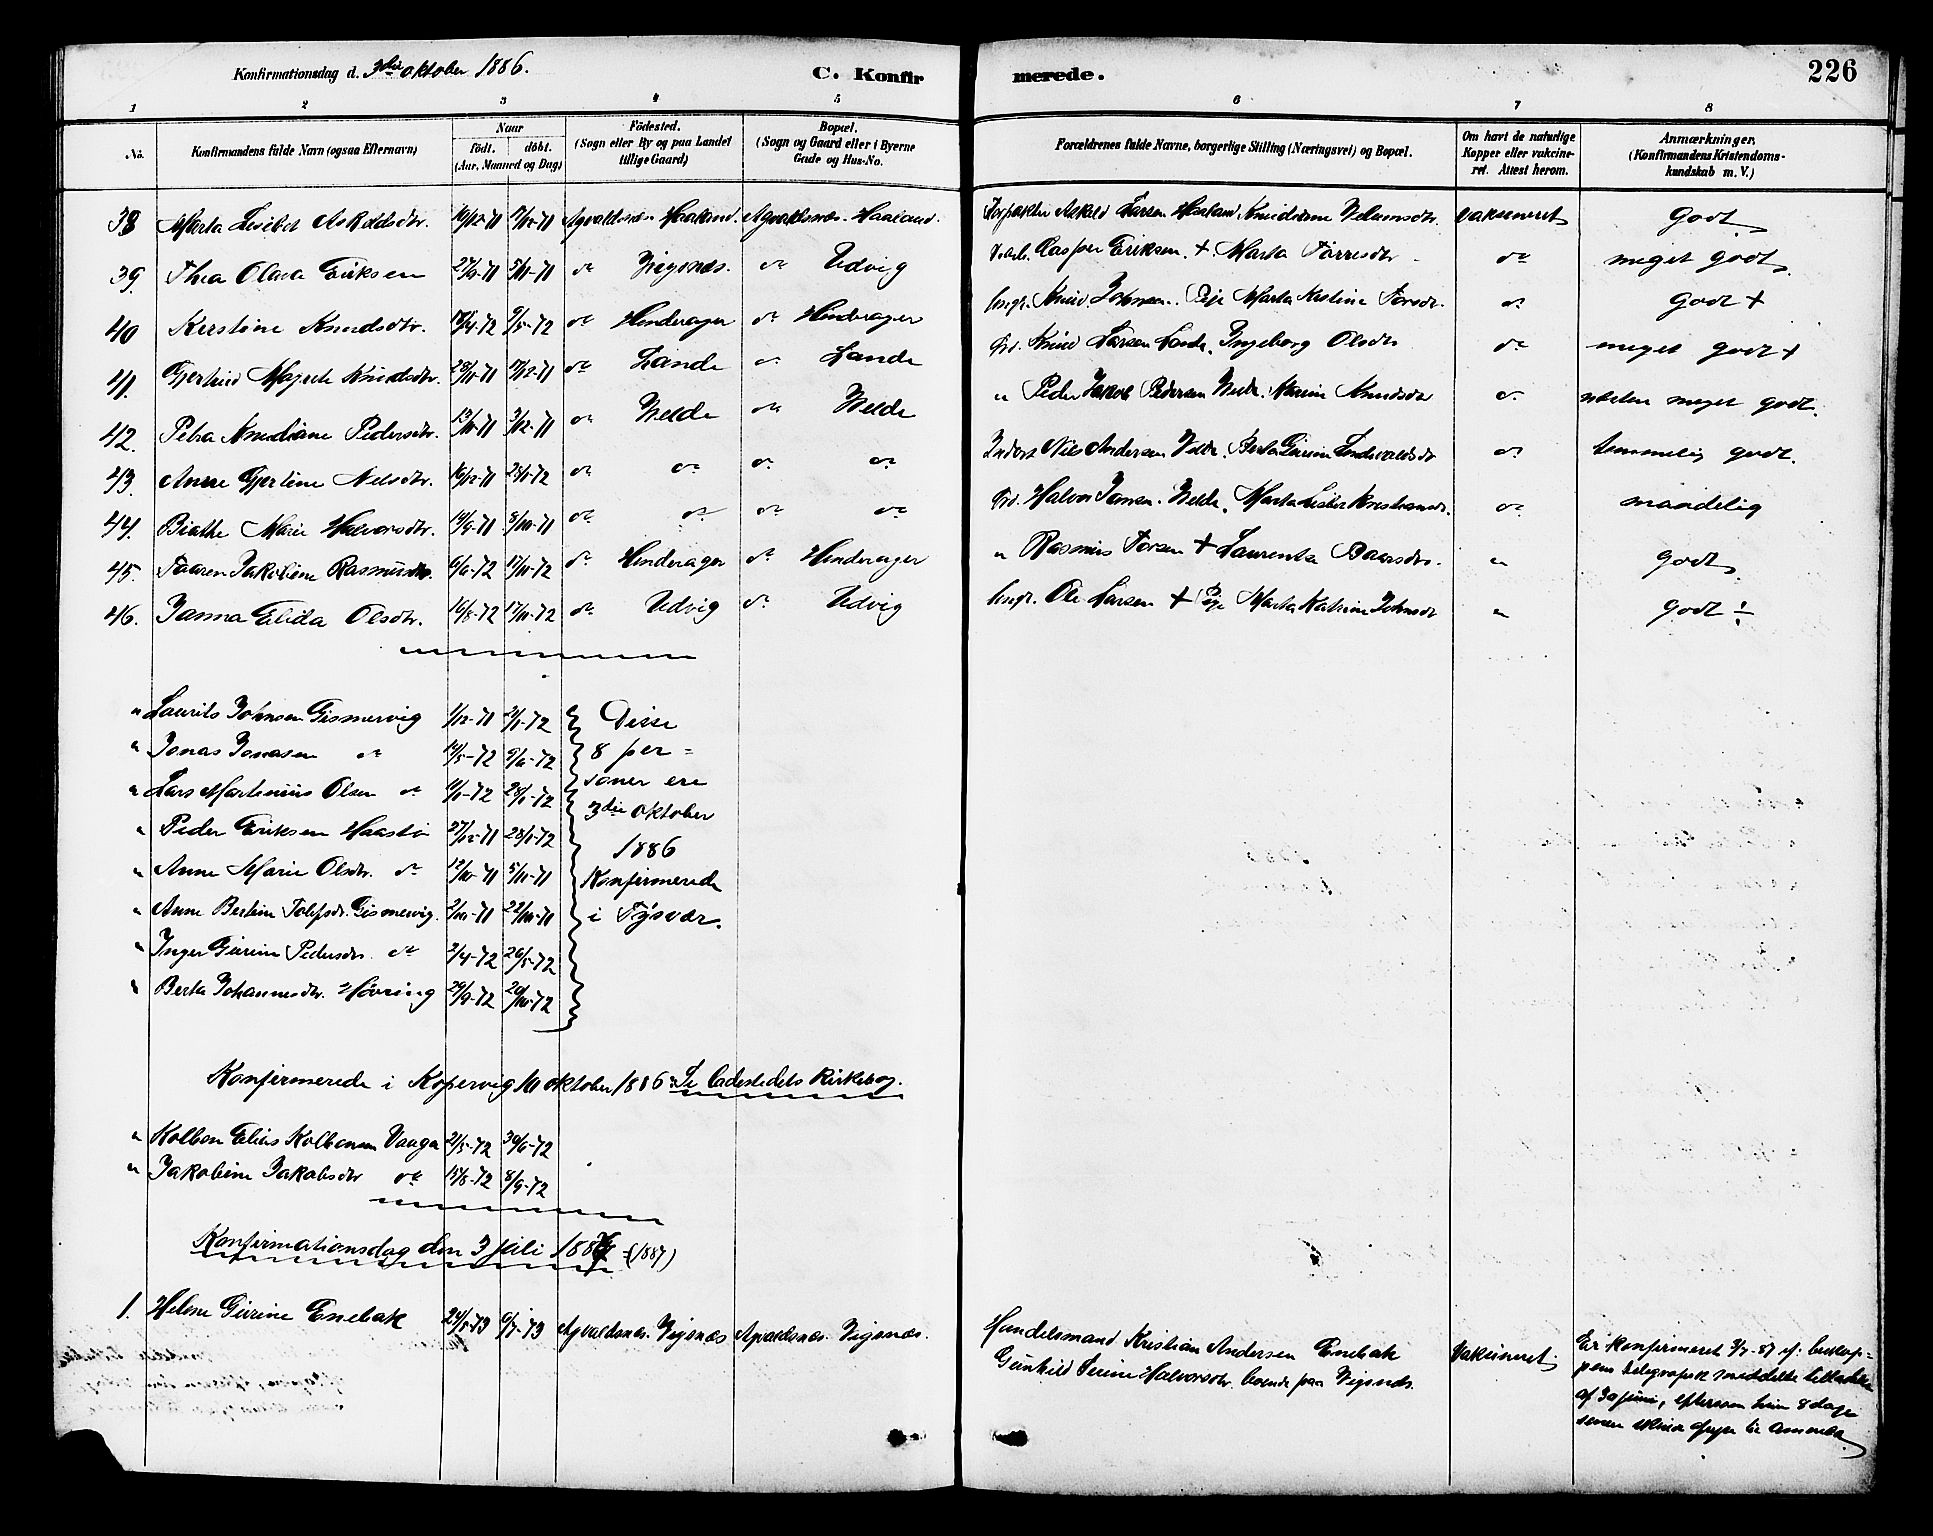 Konfirmationsdag d. 3die oktober 1886. C. Konfirmerede. 226
1 2 3 4 5 6 7 8
No. Konfirmandens fulde Navn (ogsaa Efternavn) Naar födt. döbt. (Aar, Maaned og Dag) Födested. (Sogn eller By og paa Landet tillige Gaard) Bopæl. (Sogn og Gaard eller i Byerne Gade og Hus-No. Forældrenes fulde Navne, borgerlige Stilling (Næringsvei) og Bopæl. Om havt de naturlige Kopper eller vakcineret. Attest herom. Anmærkninger. (Konfirmandens Kristendomskundskab m. V.)
38 Marta Lisebet Askeldsdtr. 16/12-71 17/12-71 Agvaldsnæs Haaland. Agvaldsnæs. Haaland. Forpakter Askeld Larsen Haaland Knudiane Velumsdtr. vakcineret godt
39. Thea Olava Eriksen 27/9-71 5/11-71 do Vigsnæs. do Udvig Casper Eriksen. + Marta Torresdtr do meget godt
40 Kirstine Knudsdtr. 14/4-72 9/5-72 do Hinderager do Hinderager Ungk. Knud Johnsen. Pige Marta Kristine Torsdtr. do godt +
41. Gjertrud Magrete Knudsdtr. 29/11-71 17/12-71 do Lande do Lande Grd. Knud Larsen Lande, Ingeborg Olsdtr do meget godt +
42. Petra Knudiane Pedersdtr. 13/11-71 3/12-71 do Velde do Velde " Peder Jakob Pedersen Velde. Marine Knudsdtr do næsten meget godt.
43. Anne Gjertine Nilsdtr. 16/12-71 28/1-72 do do do do Inderst Nils Andersen Velde. Berta Gurine Endvoldsdtr do temmelig godt.
44. Biathe Marie Halvorsdtr. 14/9-71 8/10-71 do do do do Grd. Halvor Jansen. Velde, Marta Lisbet Kristiansdtr. do maadelig
45. Taaren Jakobine Rasmusdtr. 6/6-72 17/11-72 do Hinderager do Hinderager " Rasmus Torsen + Laurentse Baarsdtr. " godt
46. Janna Elida Olsdtr. 16/8-72 17/11-72 do Udvig do Udvig Ungk. Ole Larsen + Pige Marta Katrine Johnsdtr " godt ÷
" Laurits Johnsen Gismervig 1/12-71 21/1-72 Disse
" Jonas Jonasen do 14/5-72 9/6-72 8 per=
" Lars Martinius Olsen do 11/1-72 28/1-72 soner ere
3die oktober
" Peder Eriksen Haastø 27/12-71 28/1-72 1886
" Anne Marie Olsdtr. do 12/10-71 5/11-71 Konfirmerede
" Anne Bertine Tolfsdr. Gismervig. 2/10-71 22/10-71 i Tysvær.
" Inger Gurine Pedersdtr. do 2/4-72 26/5-72
" Berta Johannesdtr. Høvring 29/9-72 20/10-72
Konfirmerede i Kopervig 10 oktober 1886. Se Ladestedets Kirkebog.
" Kolben Elias Kolbensen Vaaga 21/5-72 30/6-72
" Jakobine Jakobsdtr do 15/8-72 8/9-72
Konfirmationsdag den 3 Juli 1887 (1887)
1. Helene Gurine Enebak 24/5-73 6/7-73 Agvaldsnæs. Vigsnæs Agvaldsnæs. Vigsnæs. Handelsmand Kristian Andersen Enebak Vakcineret.
Gunhild Serine Halvorsdtr. boende paa Vigsnæs.
Er konfirmeret 3/7-87 ef. biskop=
pens telegrafisk meddelte tilladelse
af 30 juni, eftersom hun 8 dage
senere skulde afreise til Amerika